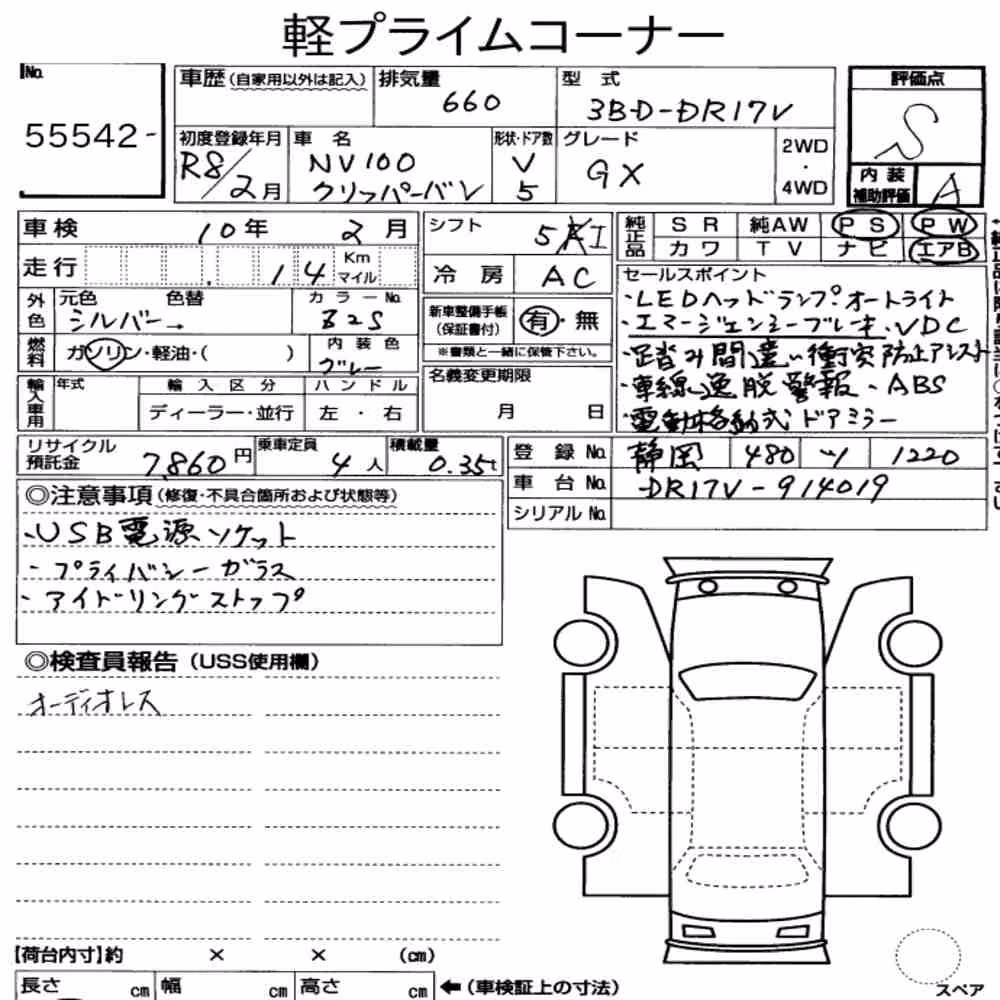 軽プライムコーナー
No.
55542-
車歴(自家用以外は記入)
排気量
660
型 式
3BD-DR17V
評価点
S
初度登録年月
R8/2月
車 名
NV100
クリッパーバン
形状・ドア数
V
5
グレード
GX
2WD
・
4WD
内 装
補助評価
A
車検 10年 2月
シフト 5 I
純正品
SR 純AW PS PW
カワ TV ナビ エアB
走行 .14 Km
マイル
冷 房 AC
外色
元色 色替
シルバー→
カラーNo.
B2S
燃料
ガソリン・軽油・( )
内 装 色
グレー
新車整備手帳
(保証書付)
有・無
※書類と一緒に保管下さい。
輸入車用
年式
輸 入 区 分
ハ ン ド ル
ディーラー・並行
左 ・ 右
名義変更期限
月 日
セールスポイント
・LEDヘッドランプ.オートライト
・エマージェンシーブレーキ.VDC
・踏み間違い衝突防止アシスト
・車線逸脱警報・ABS
・電動格納式ドアミラー
リサイクル
預託金
7,860円
乗車定員
4人
積載量
0.35t
登 録 No. 静岡 480 1220
車 台 No. DR17V-914019
シリアル No.
◎注意事項(修復・不具合箇所および状態等)
・USB電源ソケット
・プライバシーガラス
・アイドリングストップ
◎検査員報告(USS使用欄)
オーディオレス
【荷台内寸】約 × × (cm)
長さ cm 幅 cm 高さ cm ←(車検証上の寸法)
スペア